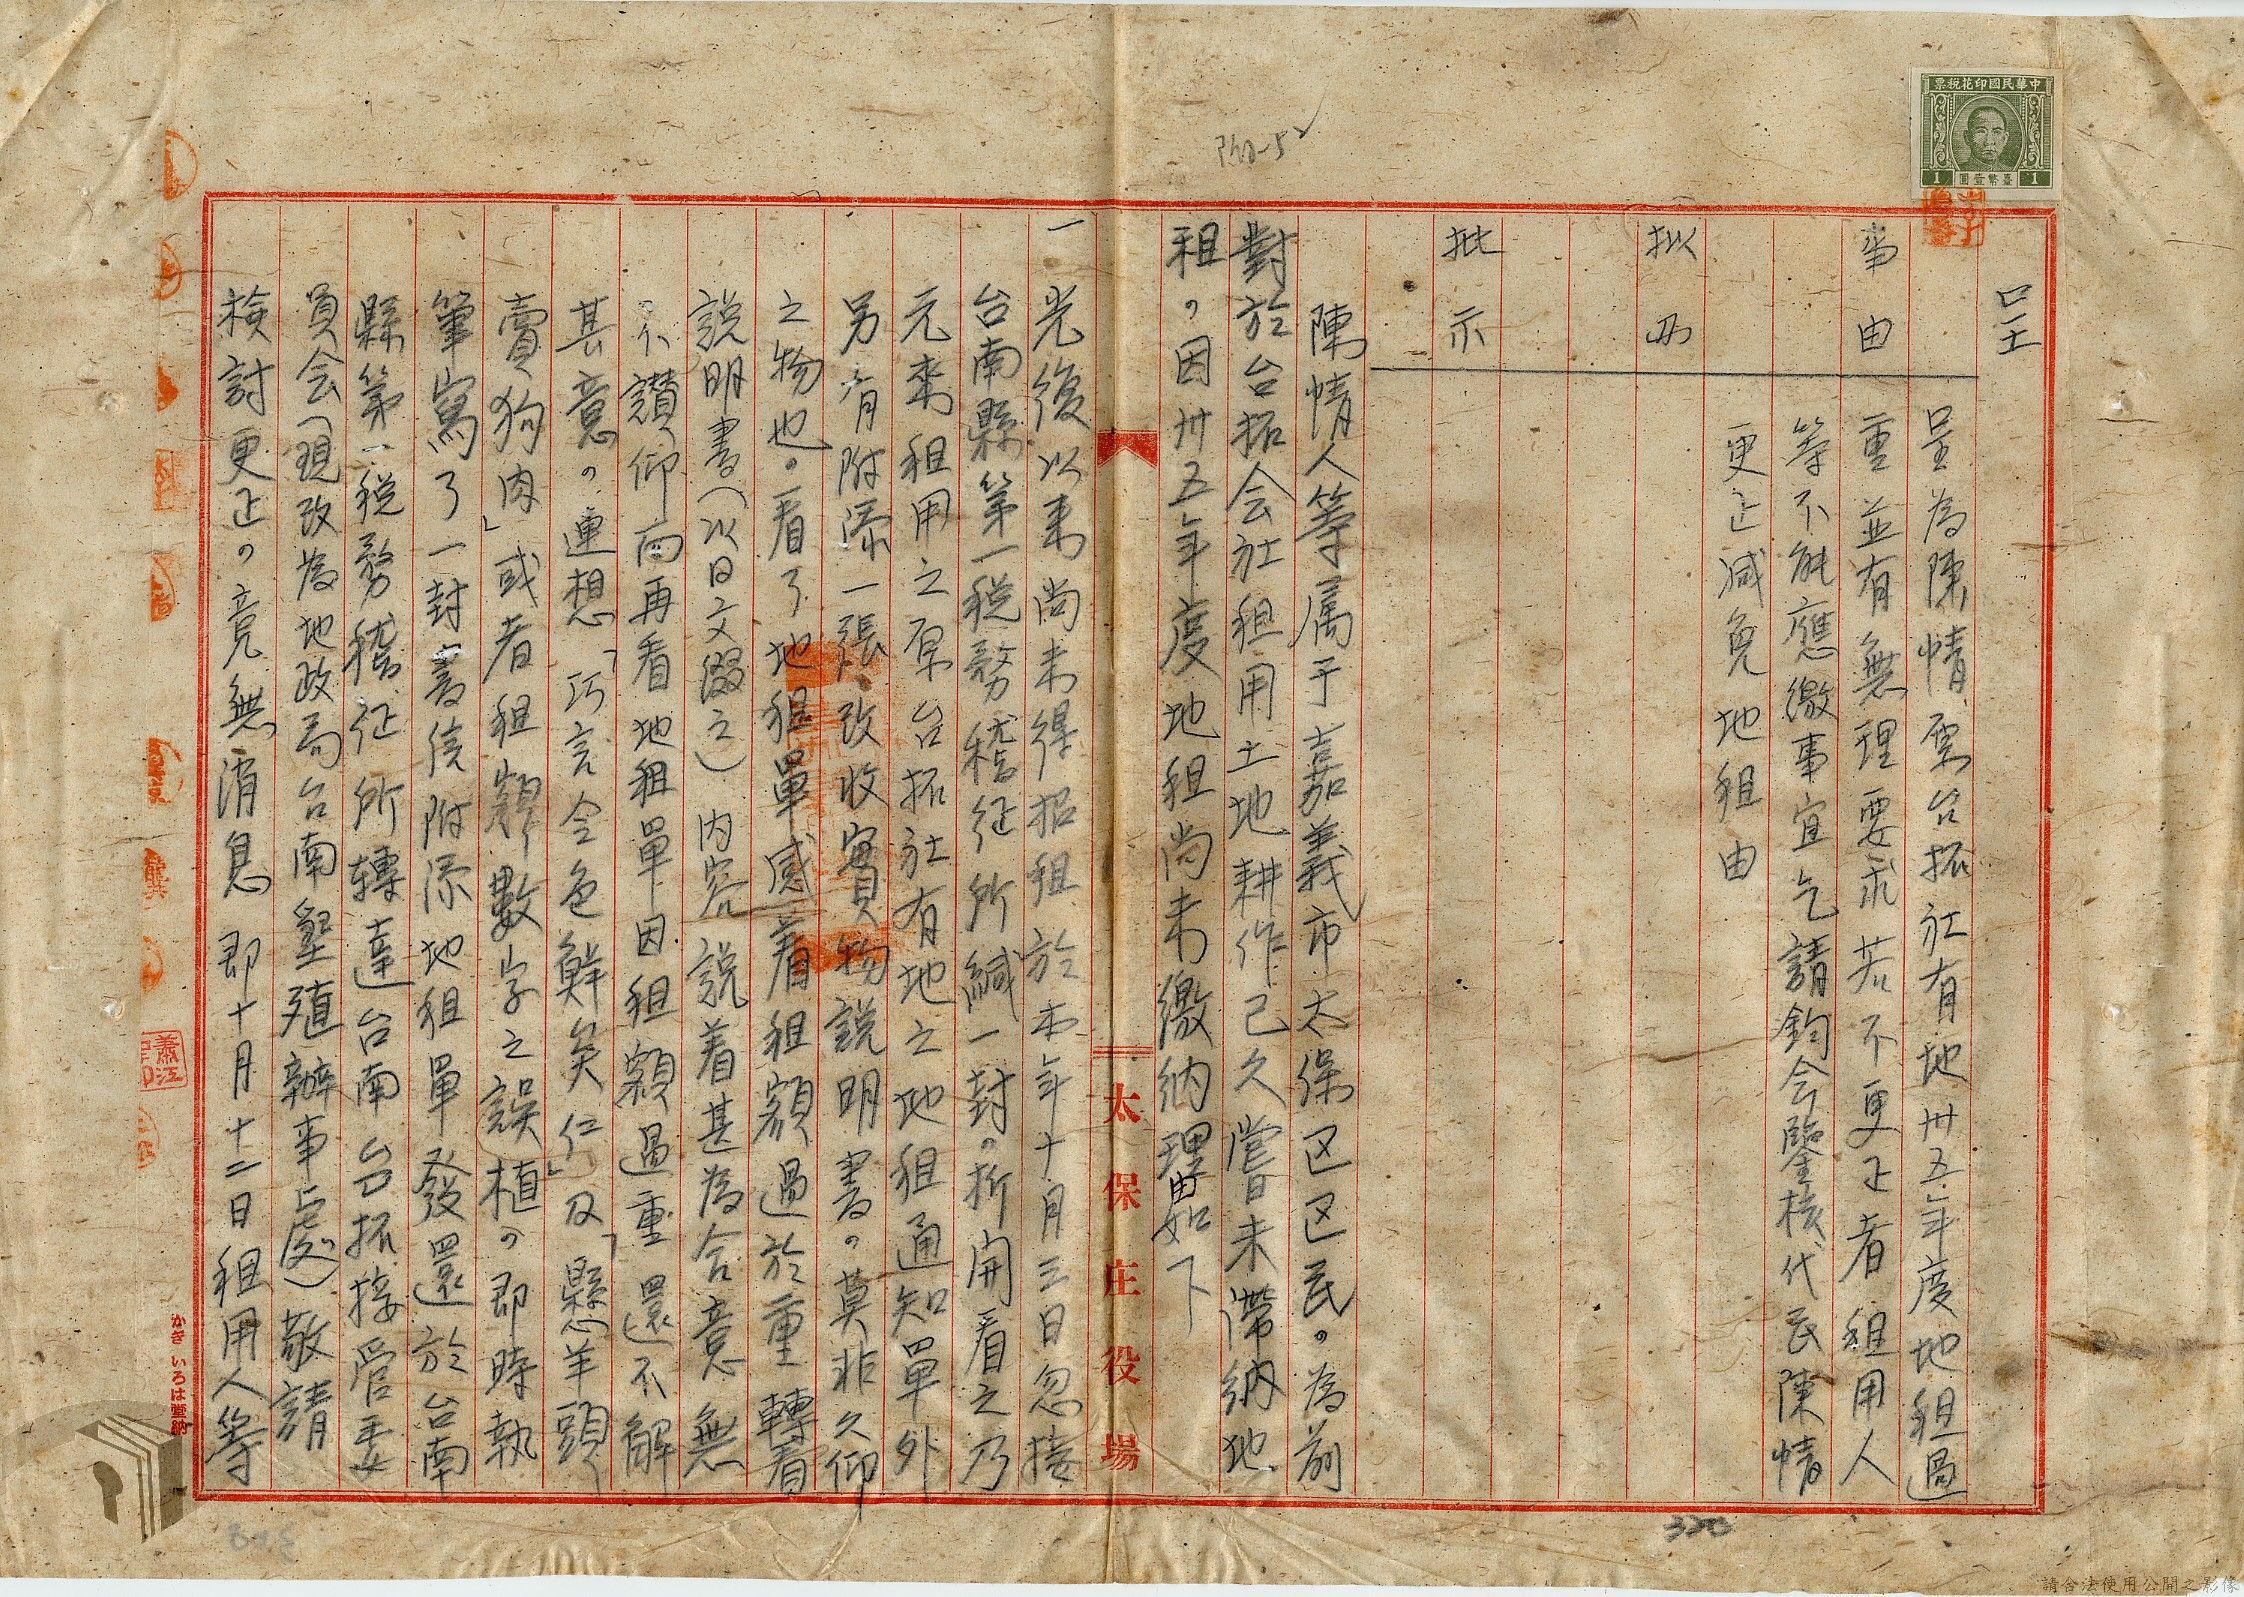 中華民國印花稅票
1 臺幣壹圓 1
呈
事由
呈為陳情原台拓社有地卅五年度地租過
重並有無理要求若不更正者租用人
等不能應繳事宜乞請鈞令鑒核代民陳情
更正減免地租由
拟办
批示
陳情人等属于嘉義市太保区区民。為前
對於台拓会社租用土地耕作已久嘗未滯納地
租。因卅五年度地租尚未繳納理由如下
太保庄役場
一 光復以来尚未得招租於本年十月三日忽接
台南縣第一税務稽征所緘一封。折開看之乃
元来租用之原台拓社有地之地租通知單外
另有附添一張改收實物説明書。莫非久仰
之物也。看了地租單感着租額過於重轉看
説明書(以日文綴之)内容説着甚為合意無
不讃仰而再看地租單因租額過重還不解
其意。連想「巧言令色鮮矣仁」及「懸羊頭
賣狗肉」或者租額數字之誤植。即時執
筆寫了一封書信附添地租單發還於台南
縣第一税務稽征所轉達台南台拓接管委
員会(現改為地政局台南墾殖辦事処)敬請
検討更正。竟無消息 即十月十二日租用人等
かぎ いろは堂納
蕭江
320
請合法使用公開之影像